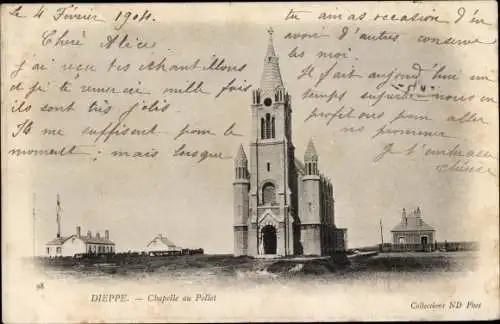 le 4 Février 1904.
Chère Alice
J'ai reçu tes échantillons
je t'en remercie mille fois
ils sont très jolis
Ils me suffisent pour le
moment; mais, lorsque
tu auras occasion d'en
avoir d'autres, conserve
les moi.
Il fait aujourd'hui un
temps superbe, nous en
profitons pour aller
nous promener.
Je t'embrasse
chérie
98
DIEPPE. — Chapelle au Pollet
Collections ND Phot